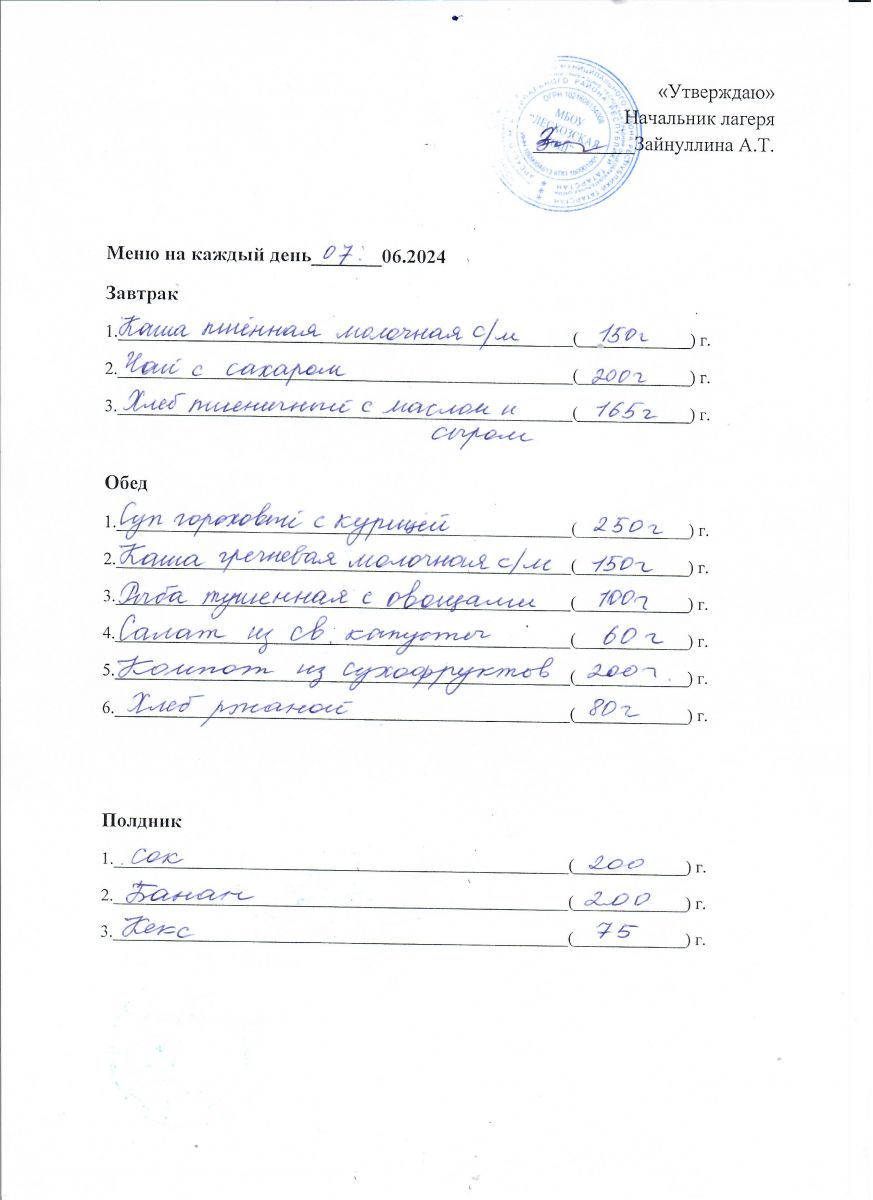 «Утверждаю»
Начальник лагеря
Зайнуллина А.Т.
МБОУ
"ЛЕСХОЗСКАЯ
Меню на каждый день 07. 06.2024
Завтрак
1. Каша пшённая молочная с/м ( 150г ) г.
2. Чай с сахаром ( 200г ) г.
3. Хлеб пшеничный с маслом и ( 165г ) г.
сыром
Обед
1. Суп гороховый с курицей ( 250г ) г.
2. Каша гречневая молочная с/м ( 150г ) г.
3. Рыба тушенная с овощами ( 100г ) г.
4. Салат из св. капусты ( 60г ) г.
5. Компот из сухофруктов ( 200г. ) г.
6. Хлеб ржаной ( 80г ) г.
Полдник
1. Сок ( 200 ) г.
2. Банан ( 200 ) г.
3. Кекс ( 75 ) г.